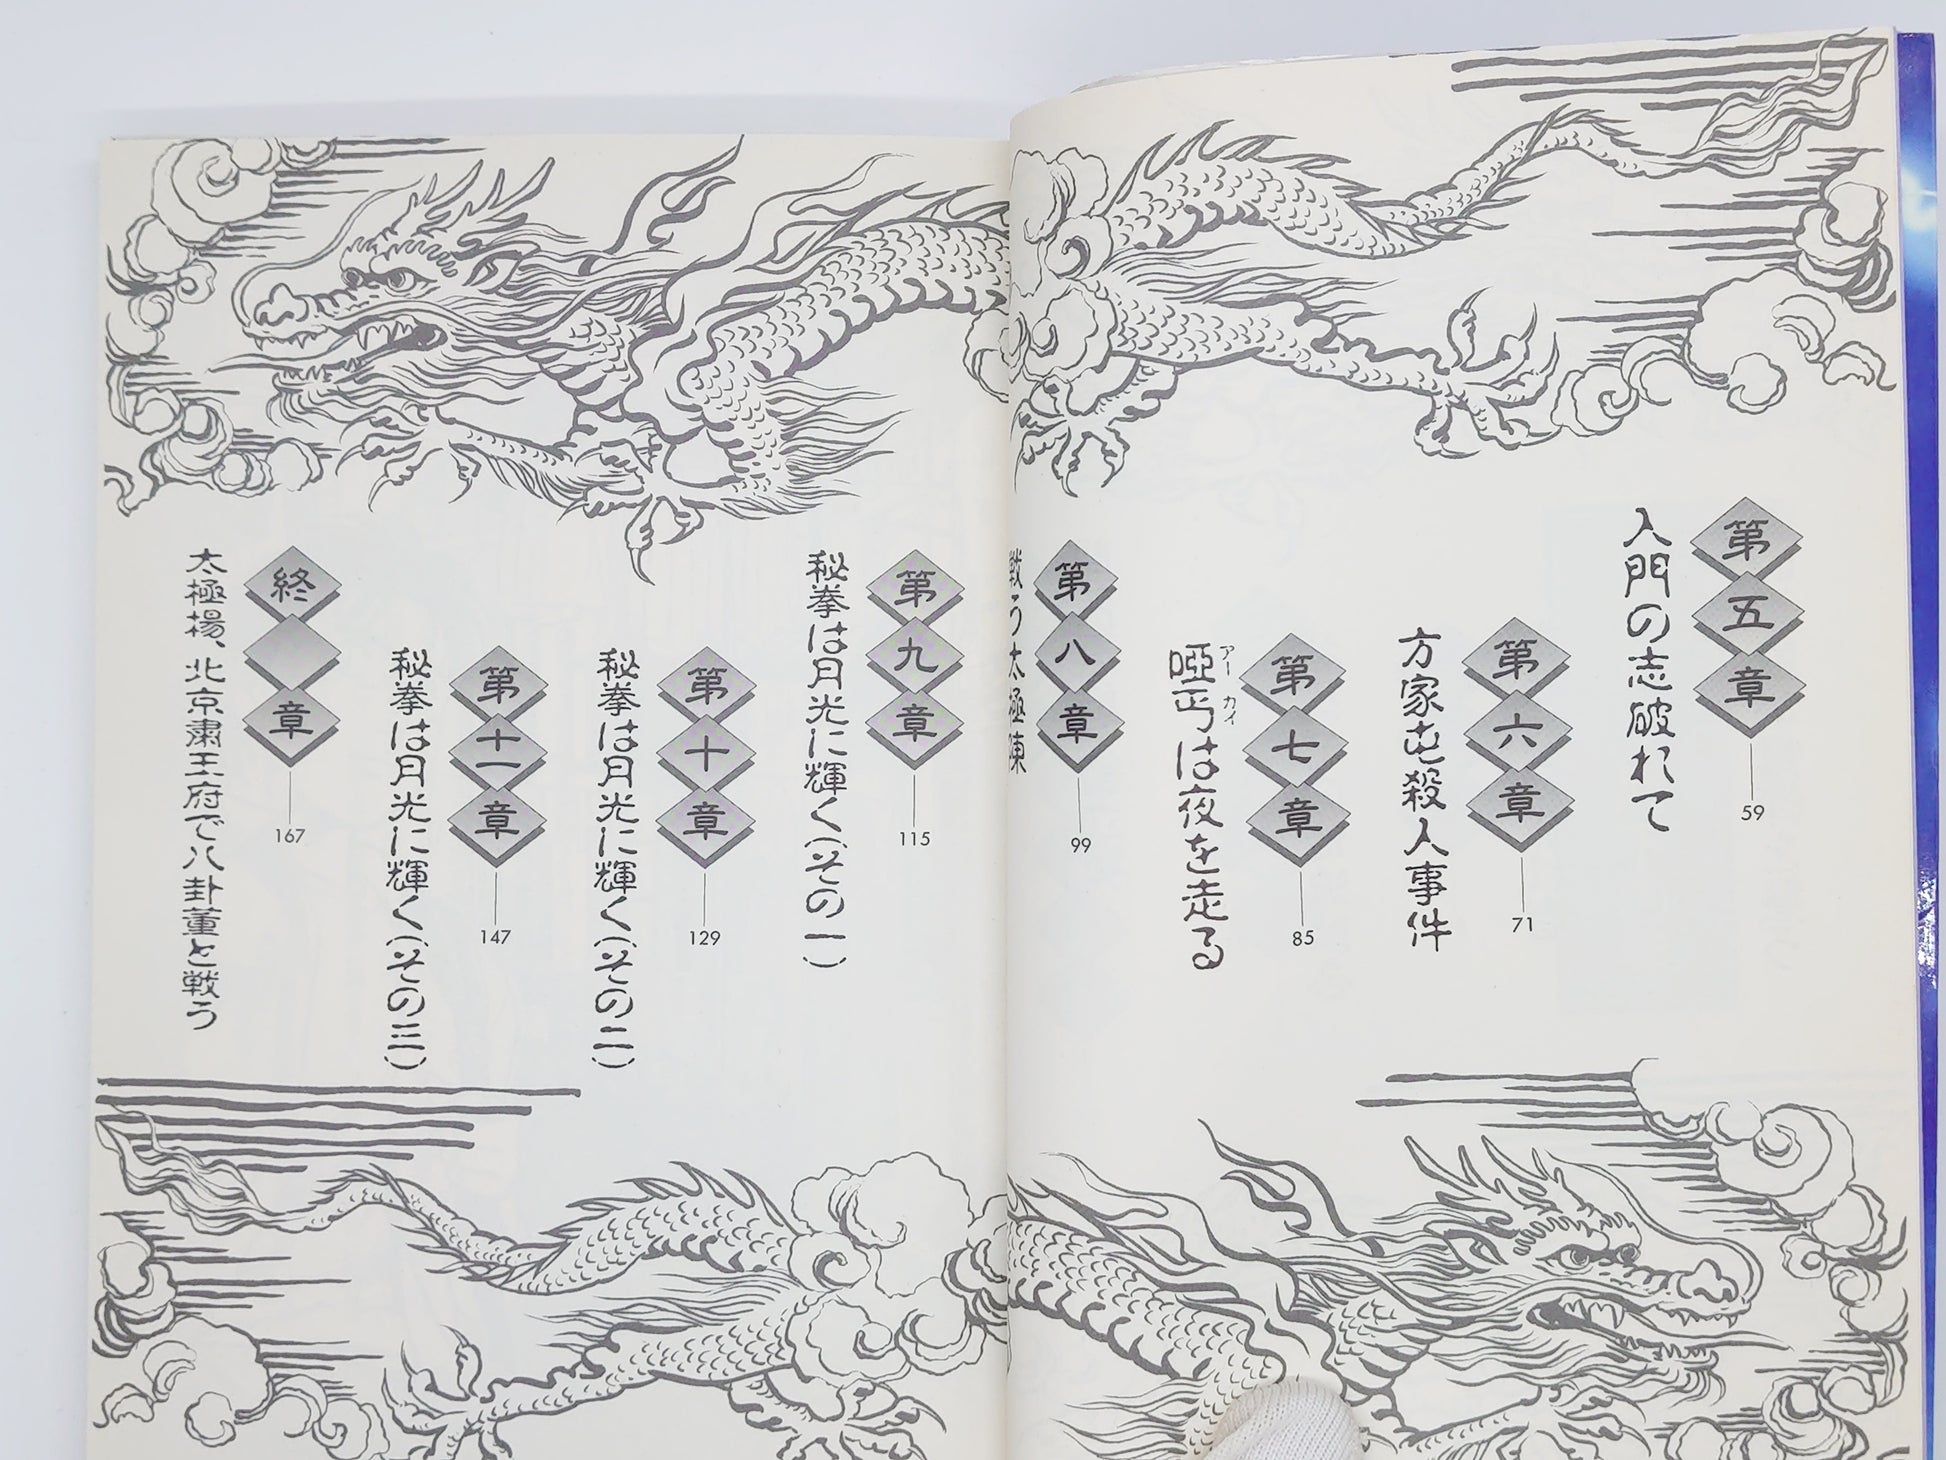 第五章
入門の志破れて
59
第六章
方家屯殺人事件
71
第七章
啞丐は夜を走る
アーカイ
85
第八章
戦う太極陳
99
第九章
秘拳は月光に輝く(その一)
115
第十章
秘拳は月光に輝く(その二)
129
第十一章
秘拳は月光に輝く(その三)
147
終章
太極楊、北京粛王府で八卦董と戦う
167